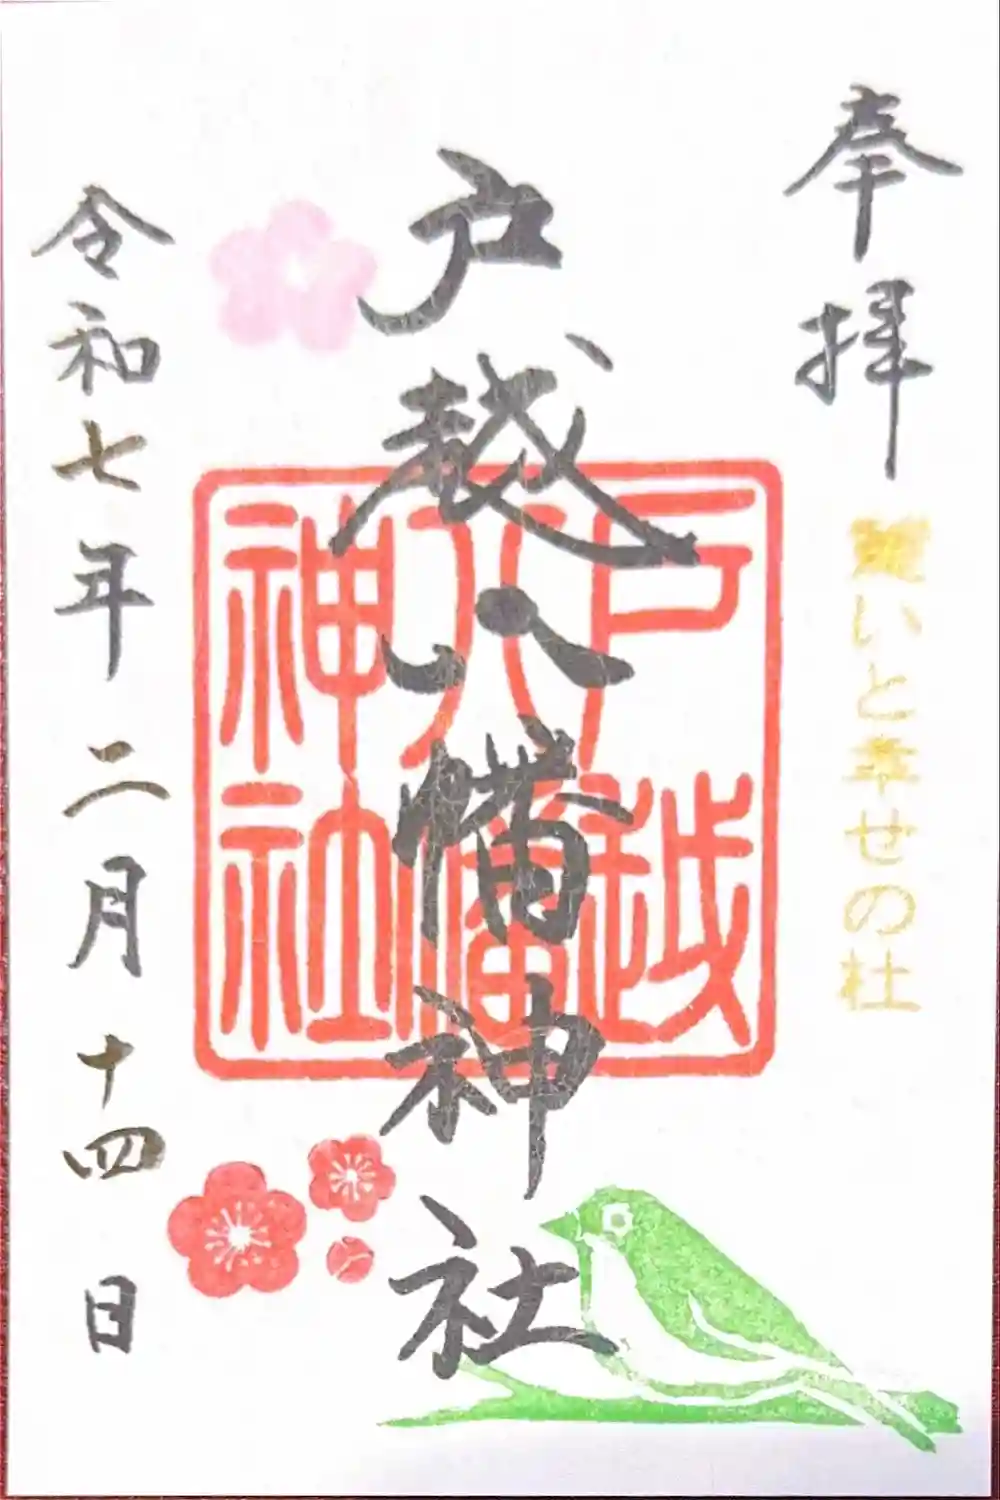 奉拝
願いと幸せの杜
戸越八幡神社
戸越
八幡
神社
令和七年二月十四日